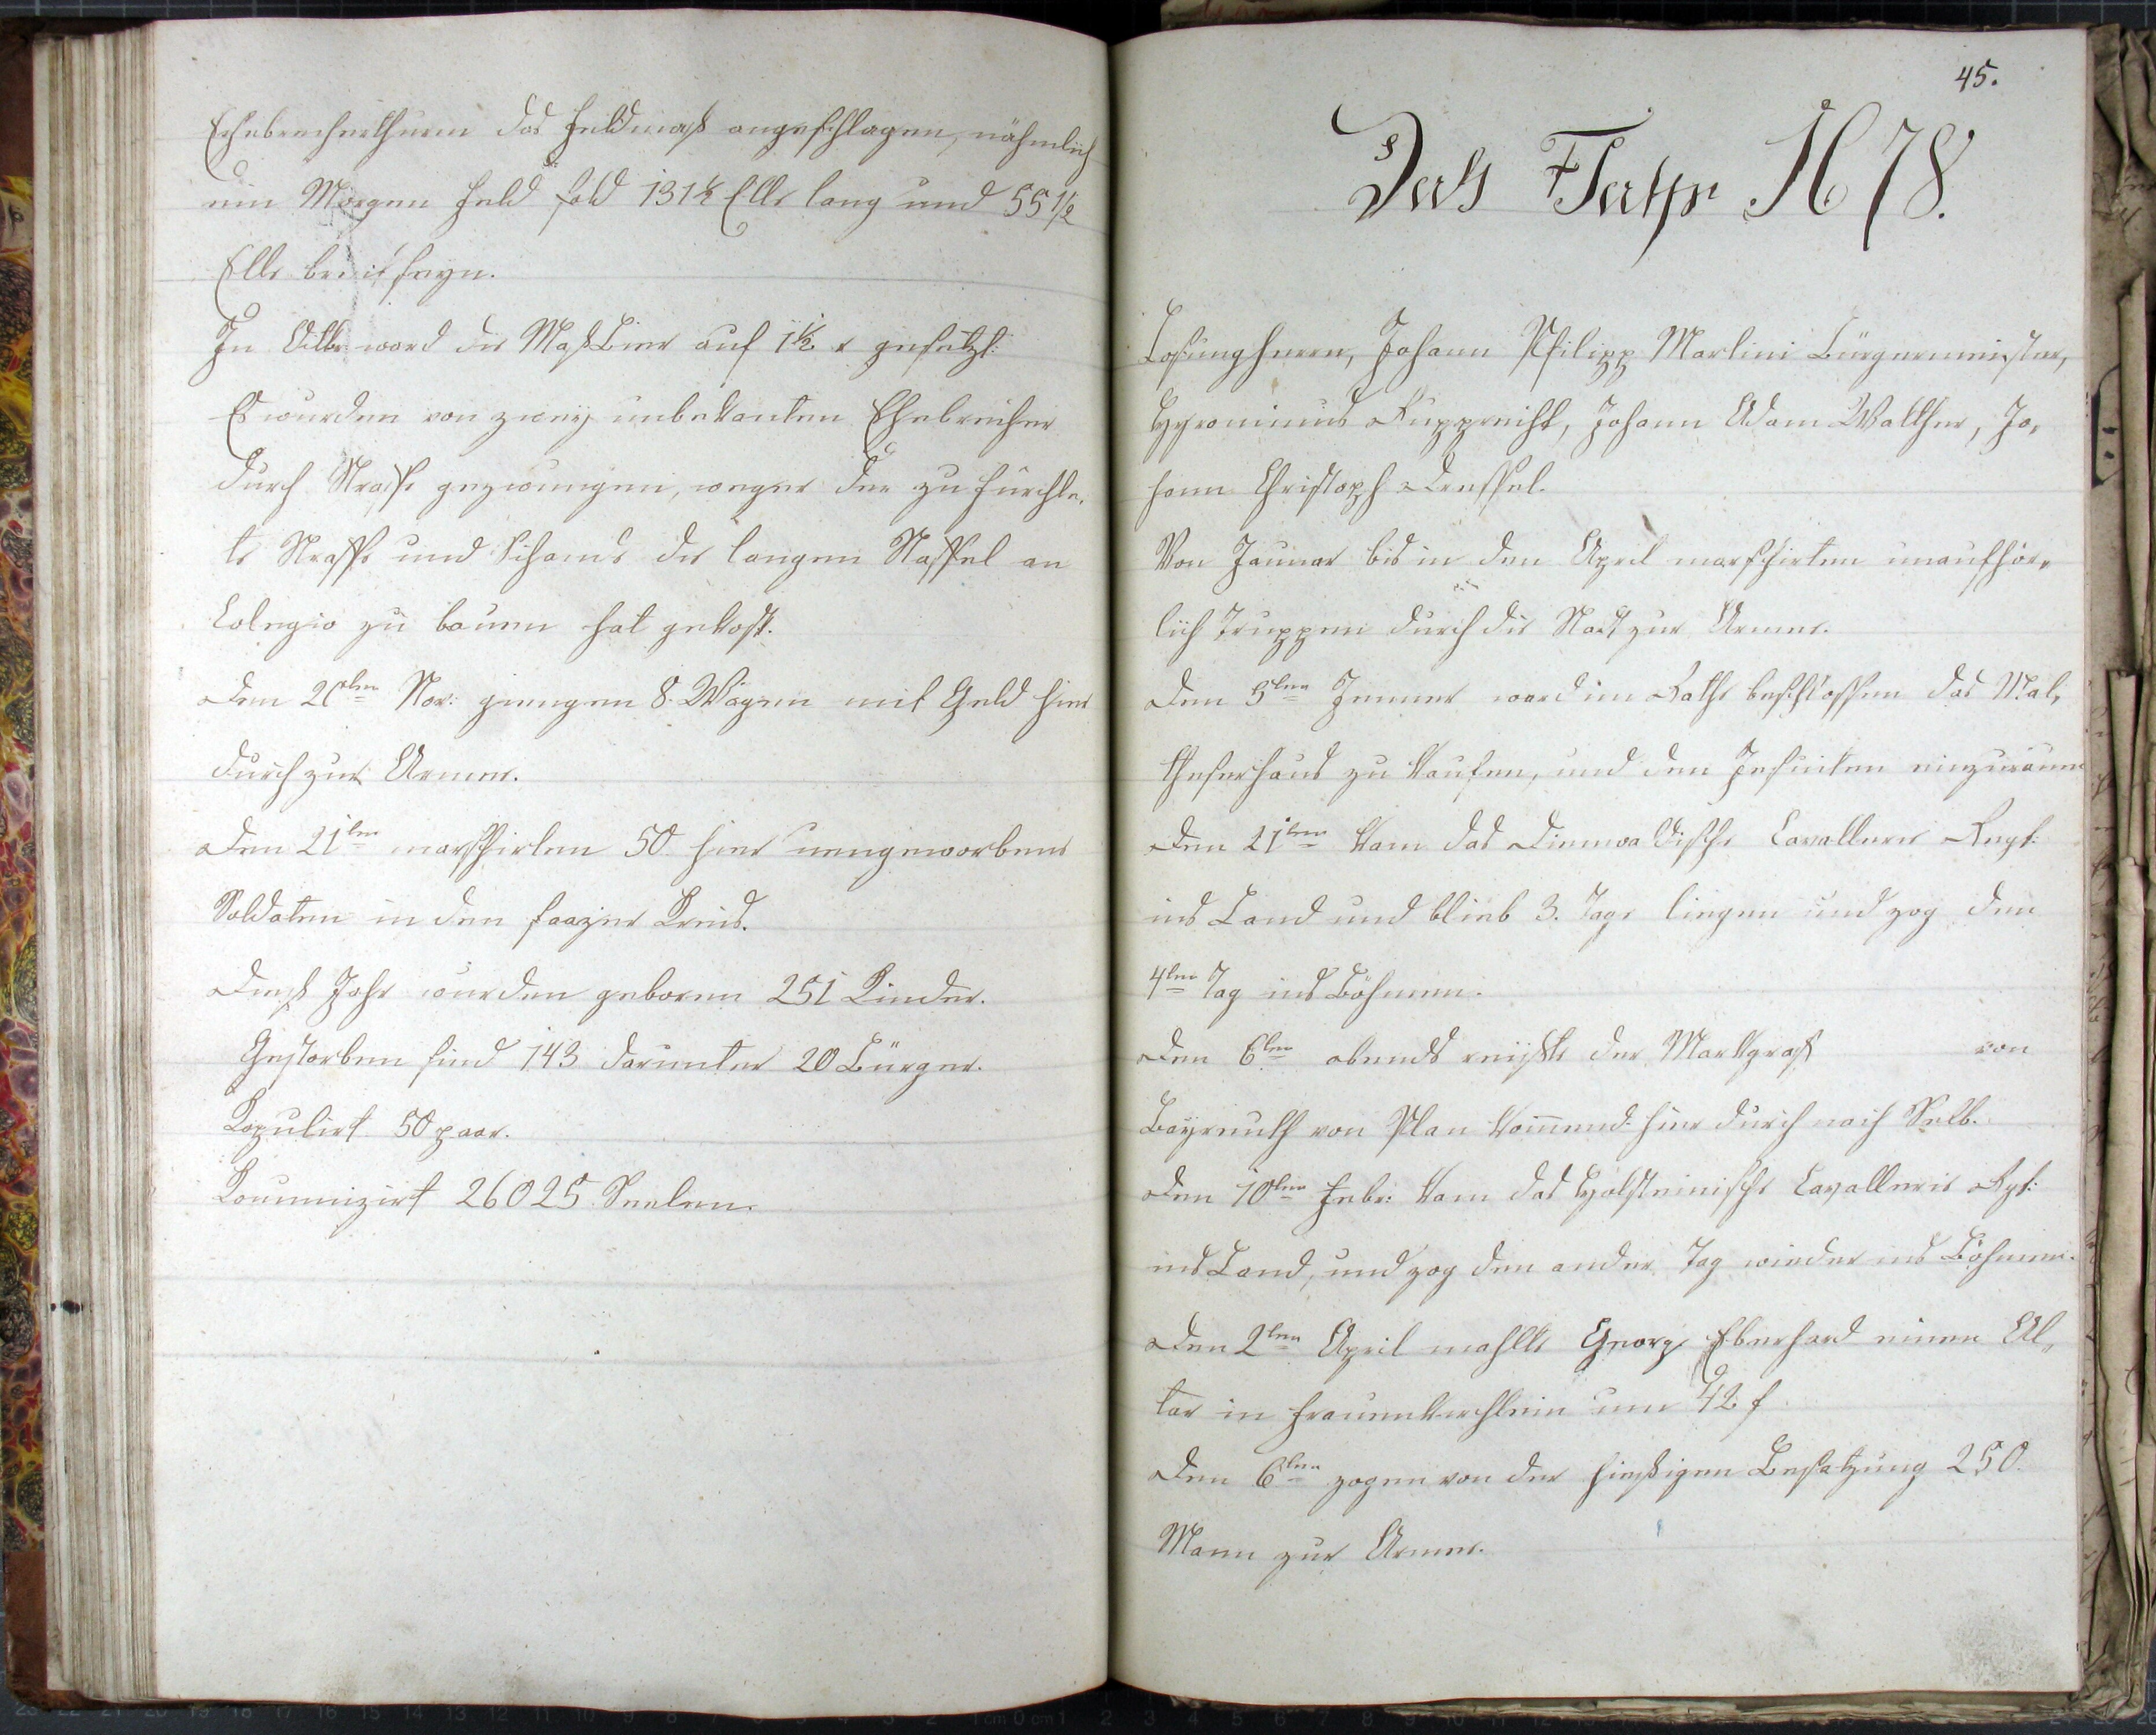 Ehebrecherthurm das Feldmaß angeschlagen, nähmlich
ein Morgen Feld sold 131½ Elle lang und 55½
Elle breit seyn.
In Octbr ward die Maß Bier auf 1½ x gesetzt.
Es wurden von zwey unbekanten Ehebrecher
durch Straffe gezwungen, wegen der zu fürchte,
te Straffe und Schande die langen Staffel an
Colegio zu bauen hat gekost.
Den 20ten Nov: giengen 8. Wägen mit Geld hier
durch zur Armee.
Den 21ten marschirten 50 hier neugeworbene
Soldaten in den saazer Kreis.
Dieß Jahr wurden geboren 251 Kinder.
Gestorben sind 143 darunter 20 Bürger.
Kopulirt 50 paar.
Kommizirt 26025 Seelen.
45.
Das Jahr 1678.
Losungherrn, Johann Philipp Martini Bürgermeister,
Hyronimus Rupprecht, Johann Adam Walther, Jo,
hann Christoph Dressel.
Von Januar bis in den April marschirten unaufhör,
lich Truppen durch die Stadt zur Armee.
Den 5ten Jenner ward im Rathe beschlossen das Mal,
theserhaus zu kaufen, und den Jesuiten einzuräum
Den 21ten kam das Dinewaldische Cavallerie Regt:
ins Land und blieb 3. Tage liegen und zog den
4ten Tag ins Böhmen.
Den 6ten abends reißte der Markgraf von
Bayreuth von Plan kommend hier durch nach Selb.
Den 10ten Febr: kam das Holsteinische Cavallerie Rgt:
ins Land, und zog den ander Tag wieder ins Böhmen.
Den 2ten April mahlte Georg Eberhard einen Al,
tar in Frauenkirchlein um 42 f
Den 6ten zogen von der hießigen Besatzung 250
Mann zur Armee.